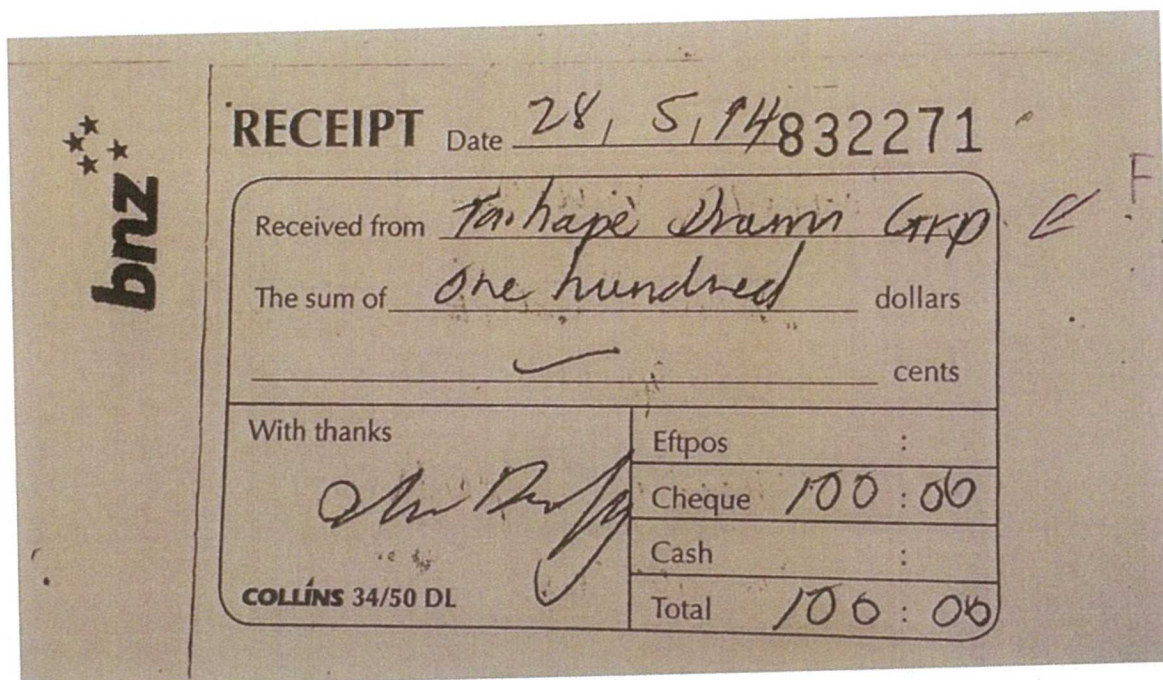 bnz
RECEIPT Date 28, 5, 14 832271
F
Received from Taihape Drama Grp.
The sum of One hundred dollars
cents
With thanks
Eftpos :
Cheque 100 : 00
Cash :
COLLINS 34/50 DL
Total 100 : 00